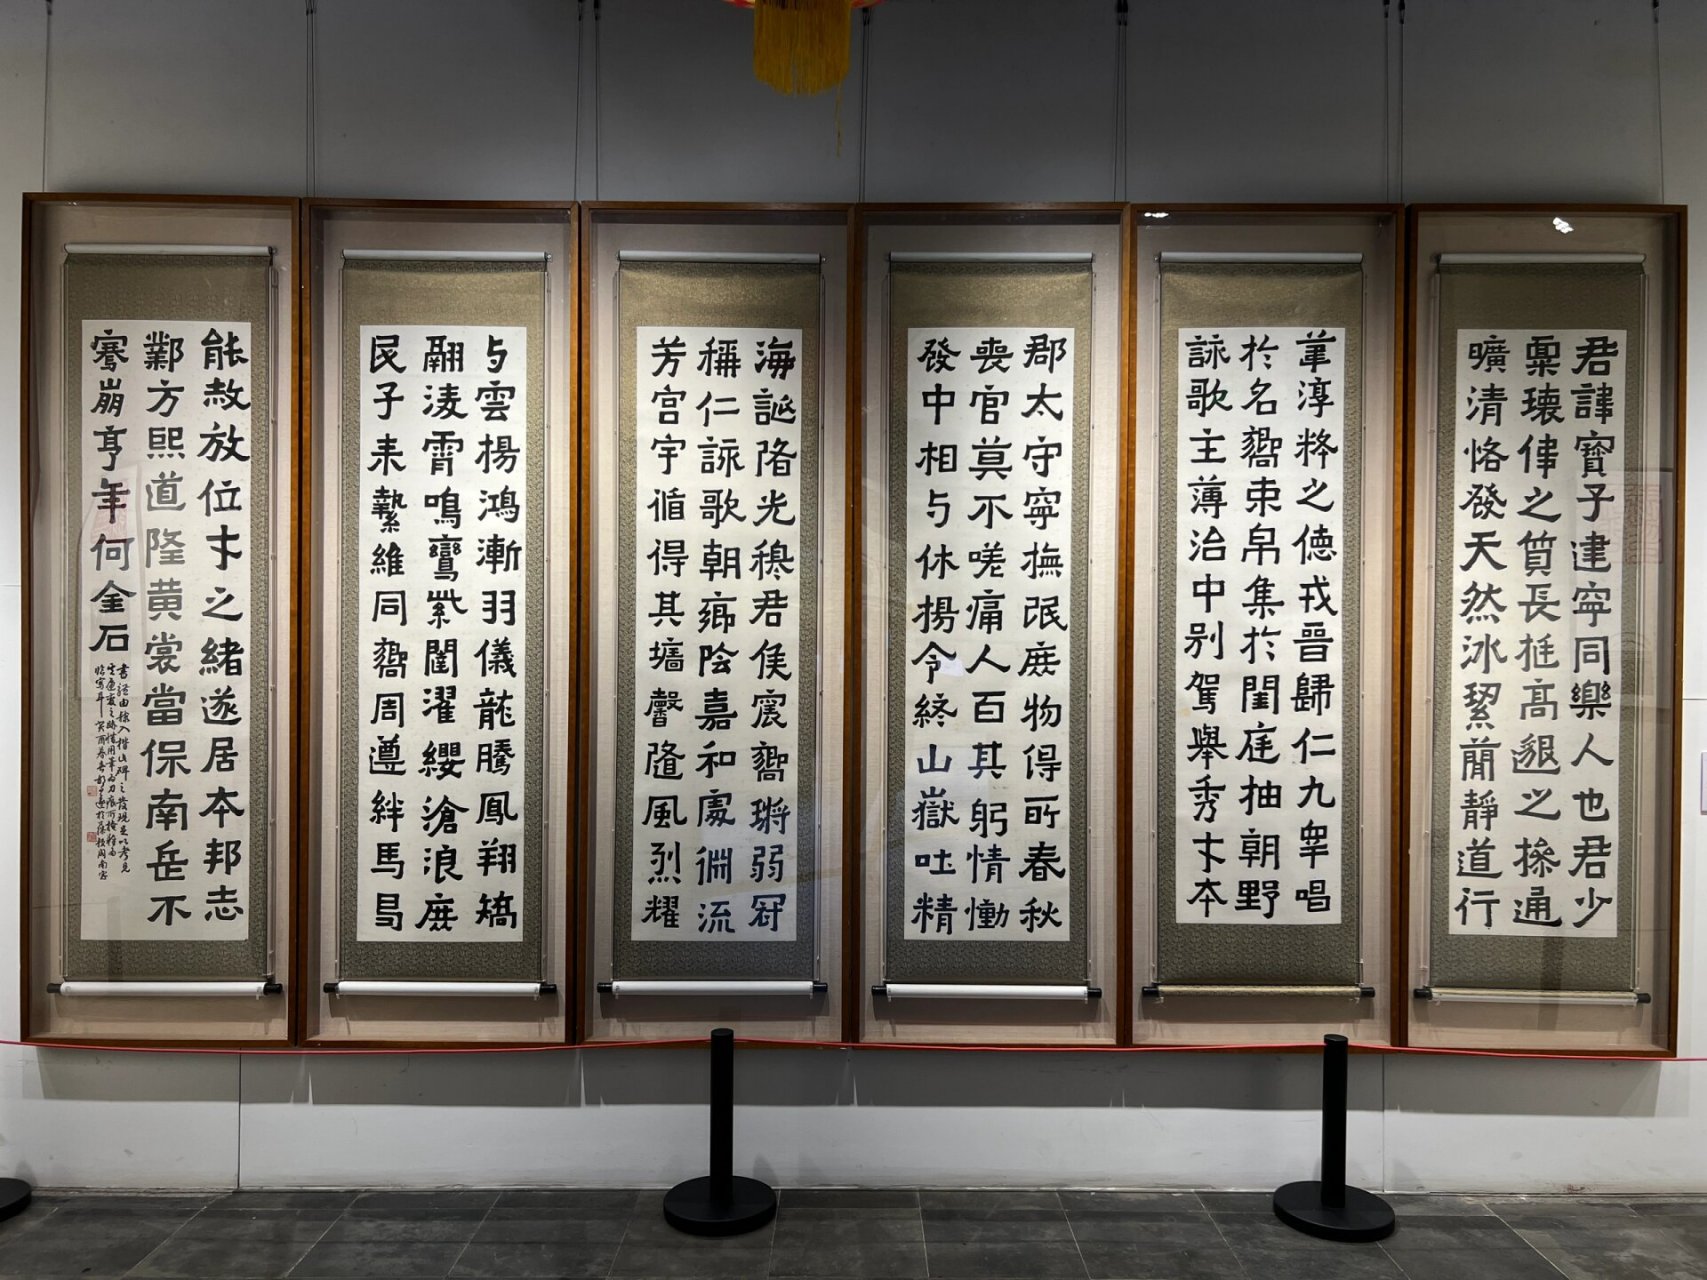 君諱寶子建寧同樂人也君少
稟瓌偉之質長挺高邈之操通
曠清恪發天然冰絜蕳靜道行
葦淳粹之德戎晉歸仁九皋唱
於名嚮束帛集於閨庭抽朝野
詠歌主薄治中别駕舉秀才本
郡太守寧撫氓庶物得所春秋
喪官莫不嗟痛人百其躬情慟
發中相与休揚令終山嶽吐精
海誕陷光穆君侯震嚮鏘弱冠
稱仁詠歌朝鄉陰嘉和處淵流
芳宮宇循得其墻馨隨風烈耀
与雲揚鴻漸羽儀龍騰鳳翔矯
翮淩霄鳴鸞紫闥濯纓滄浪庶
民子耒縶維同嚮周遵絆馬曷
能赦放位才之緒遂居本邦志
鄴方熙道隆黄裳當保南岳不
騫崩享年何金石